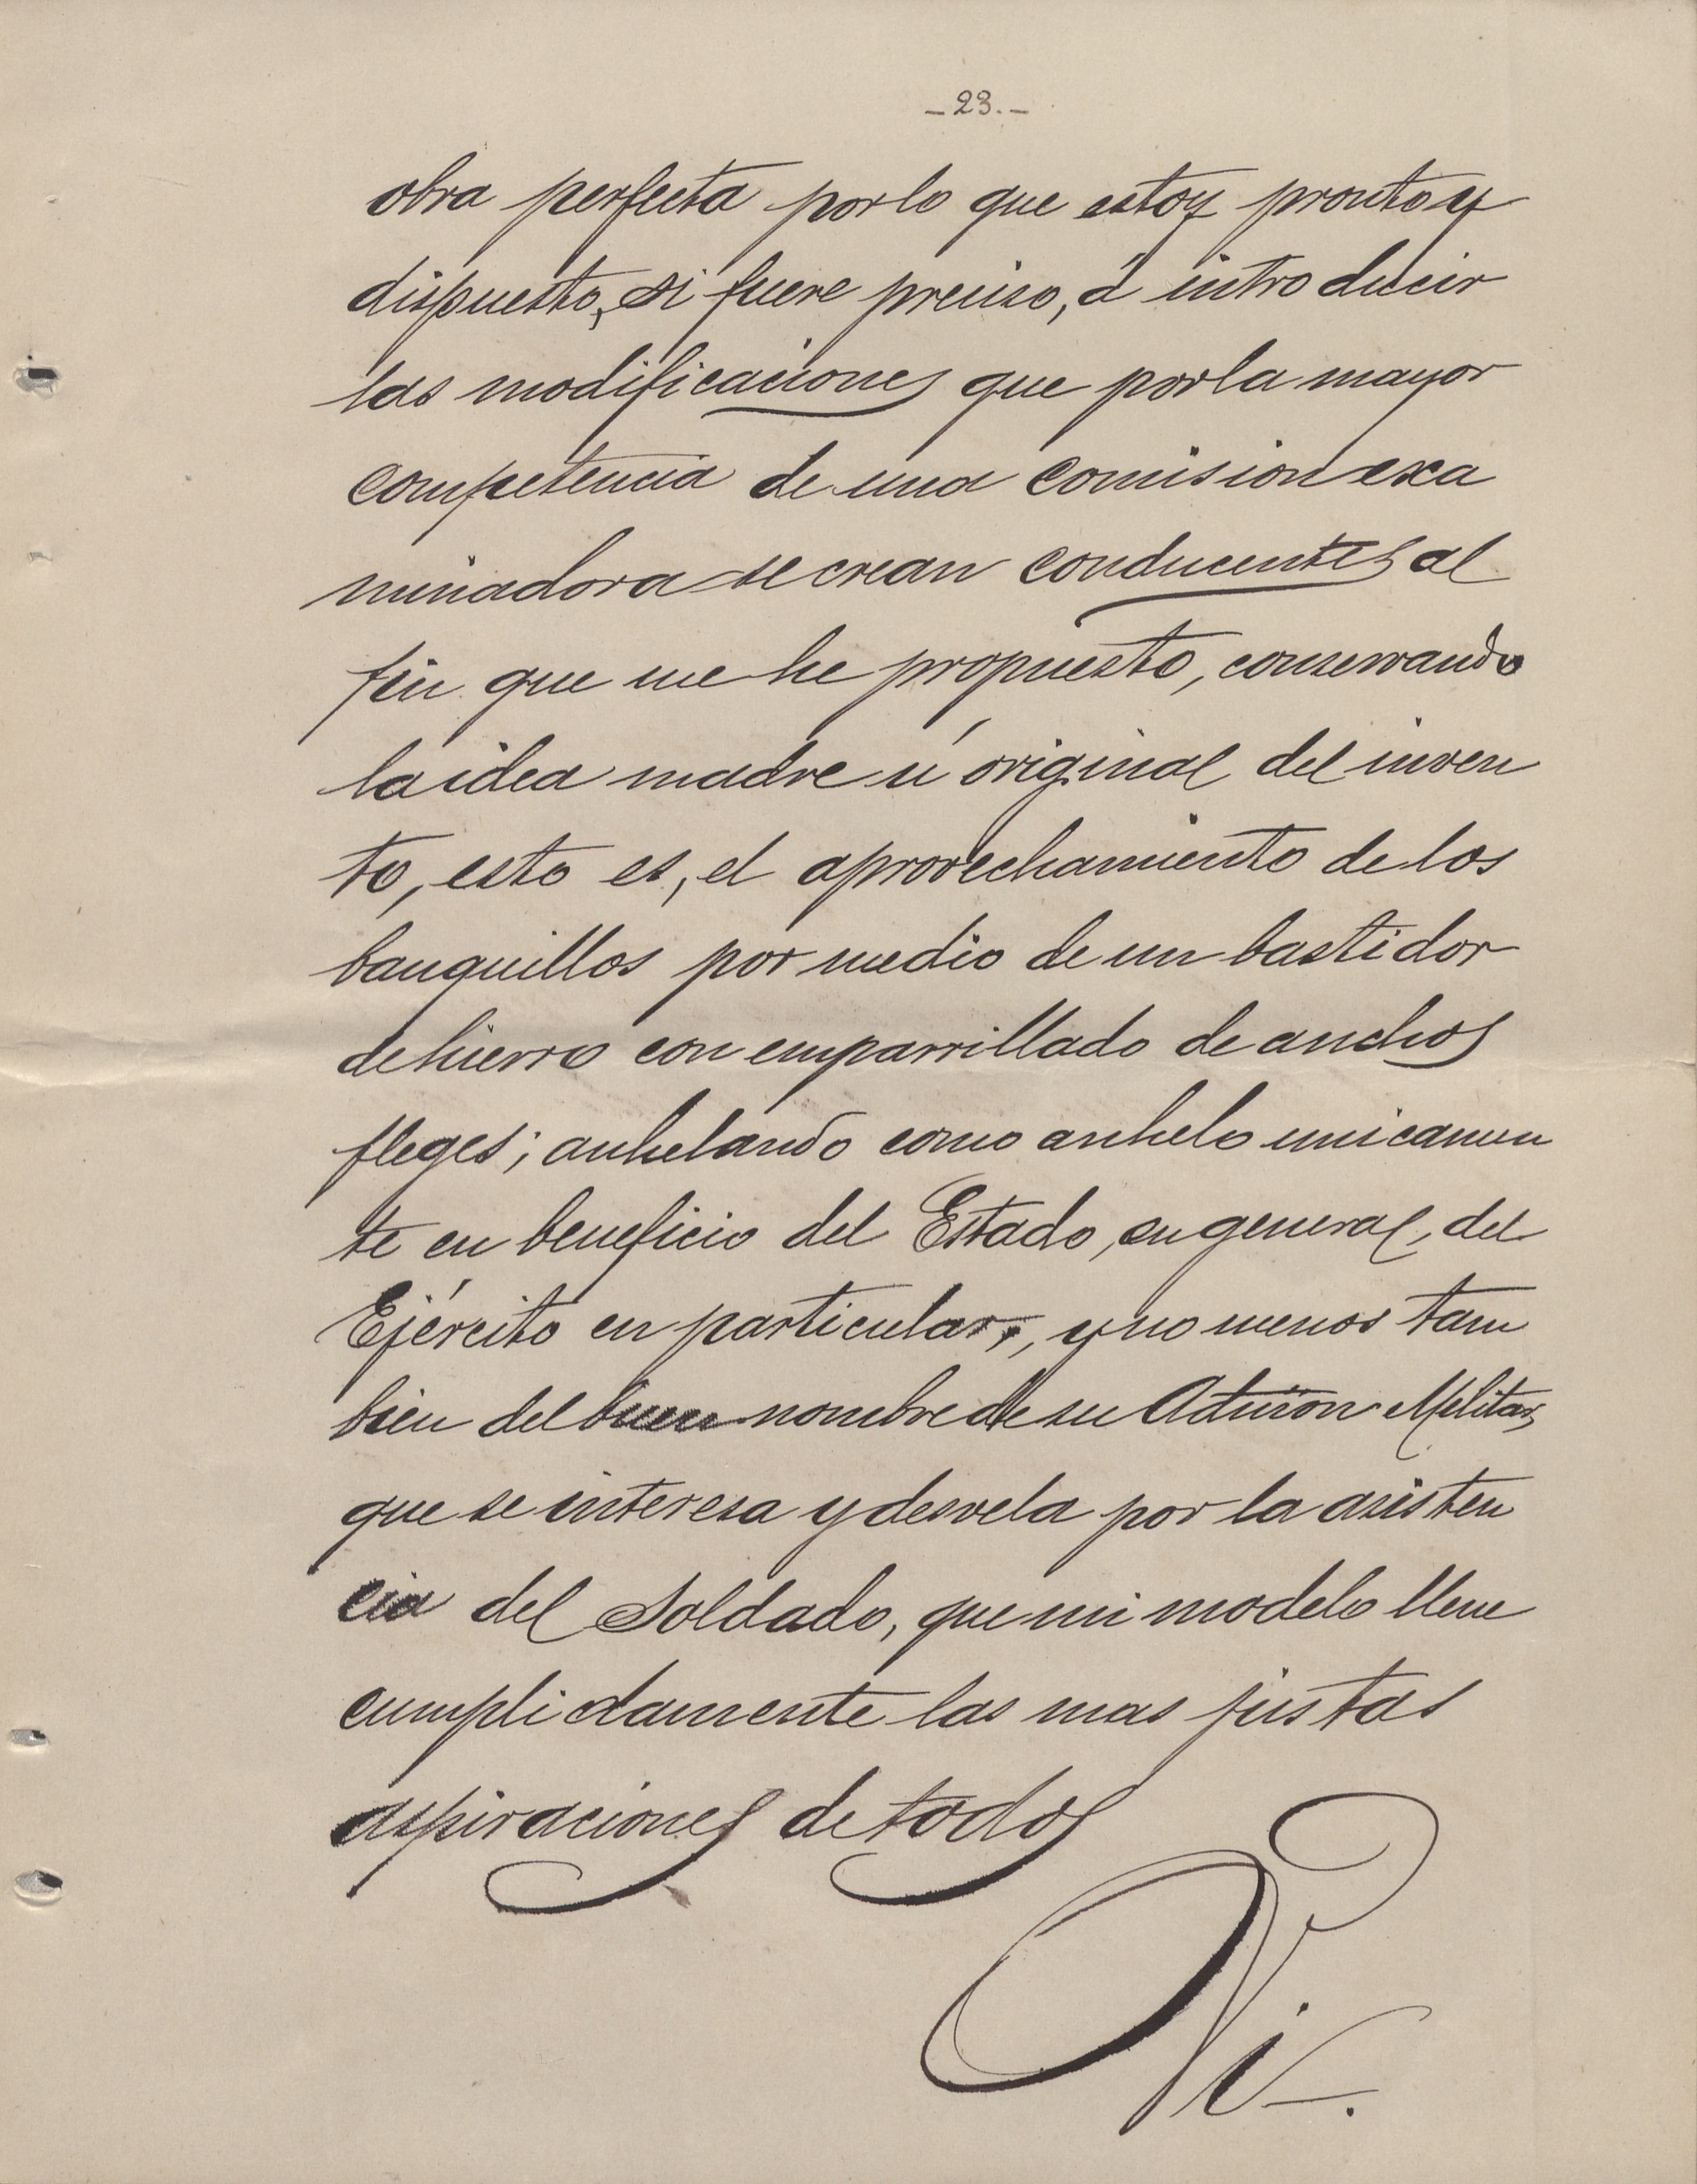 -23.-
obra perfecta por lo que estoy pronto y
dispuesto, si fuere preciso, á introducir
las modificaciones que por la mayor
competencia de una Comision exa
minadora se crean conducentes al
fin que me he propuesto, conservando
la idea madre ú original del inven
to, esto es, el aprovechamiento de los
banquillos por medio de un bastidor
de hierro con emparrillado de anchos
fleges; anhelando como anhelo unicamen
te en beneficio del Estado, en general, del
Ejército en particular, y no menos tam
bien del buen nombre de su Admon Militar,
que se interesa y desvela por la asisten
cia del Soldado, que mi modelo llene
cumplidamente las mas justas
aspiraciones de todos